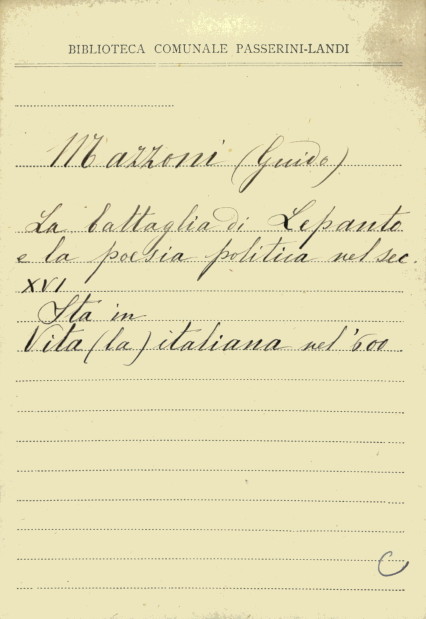 BIBLIOTECA COMUNALE PASSERINI-LANDI
Mazzoni (Guido)
La battaglia di Lepanto
e la poesia politica nel sec.
XVI
Sta in
Vita (la) italiana nel '600
C